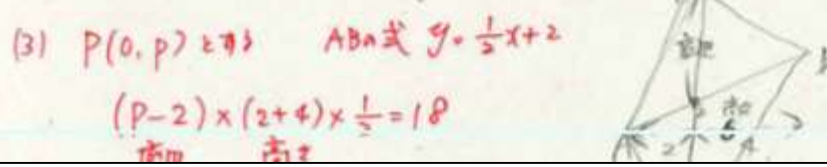 (3) P(0, p) とする ABの式 y=½x+2
(P-2)×(2+4)×½=18
2 4